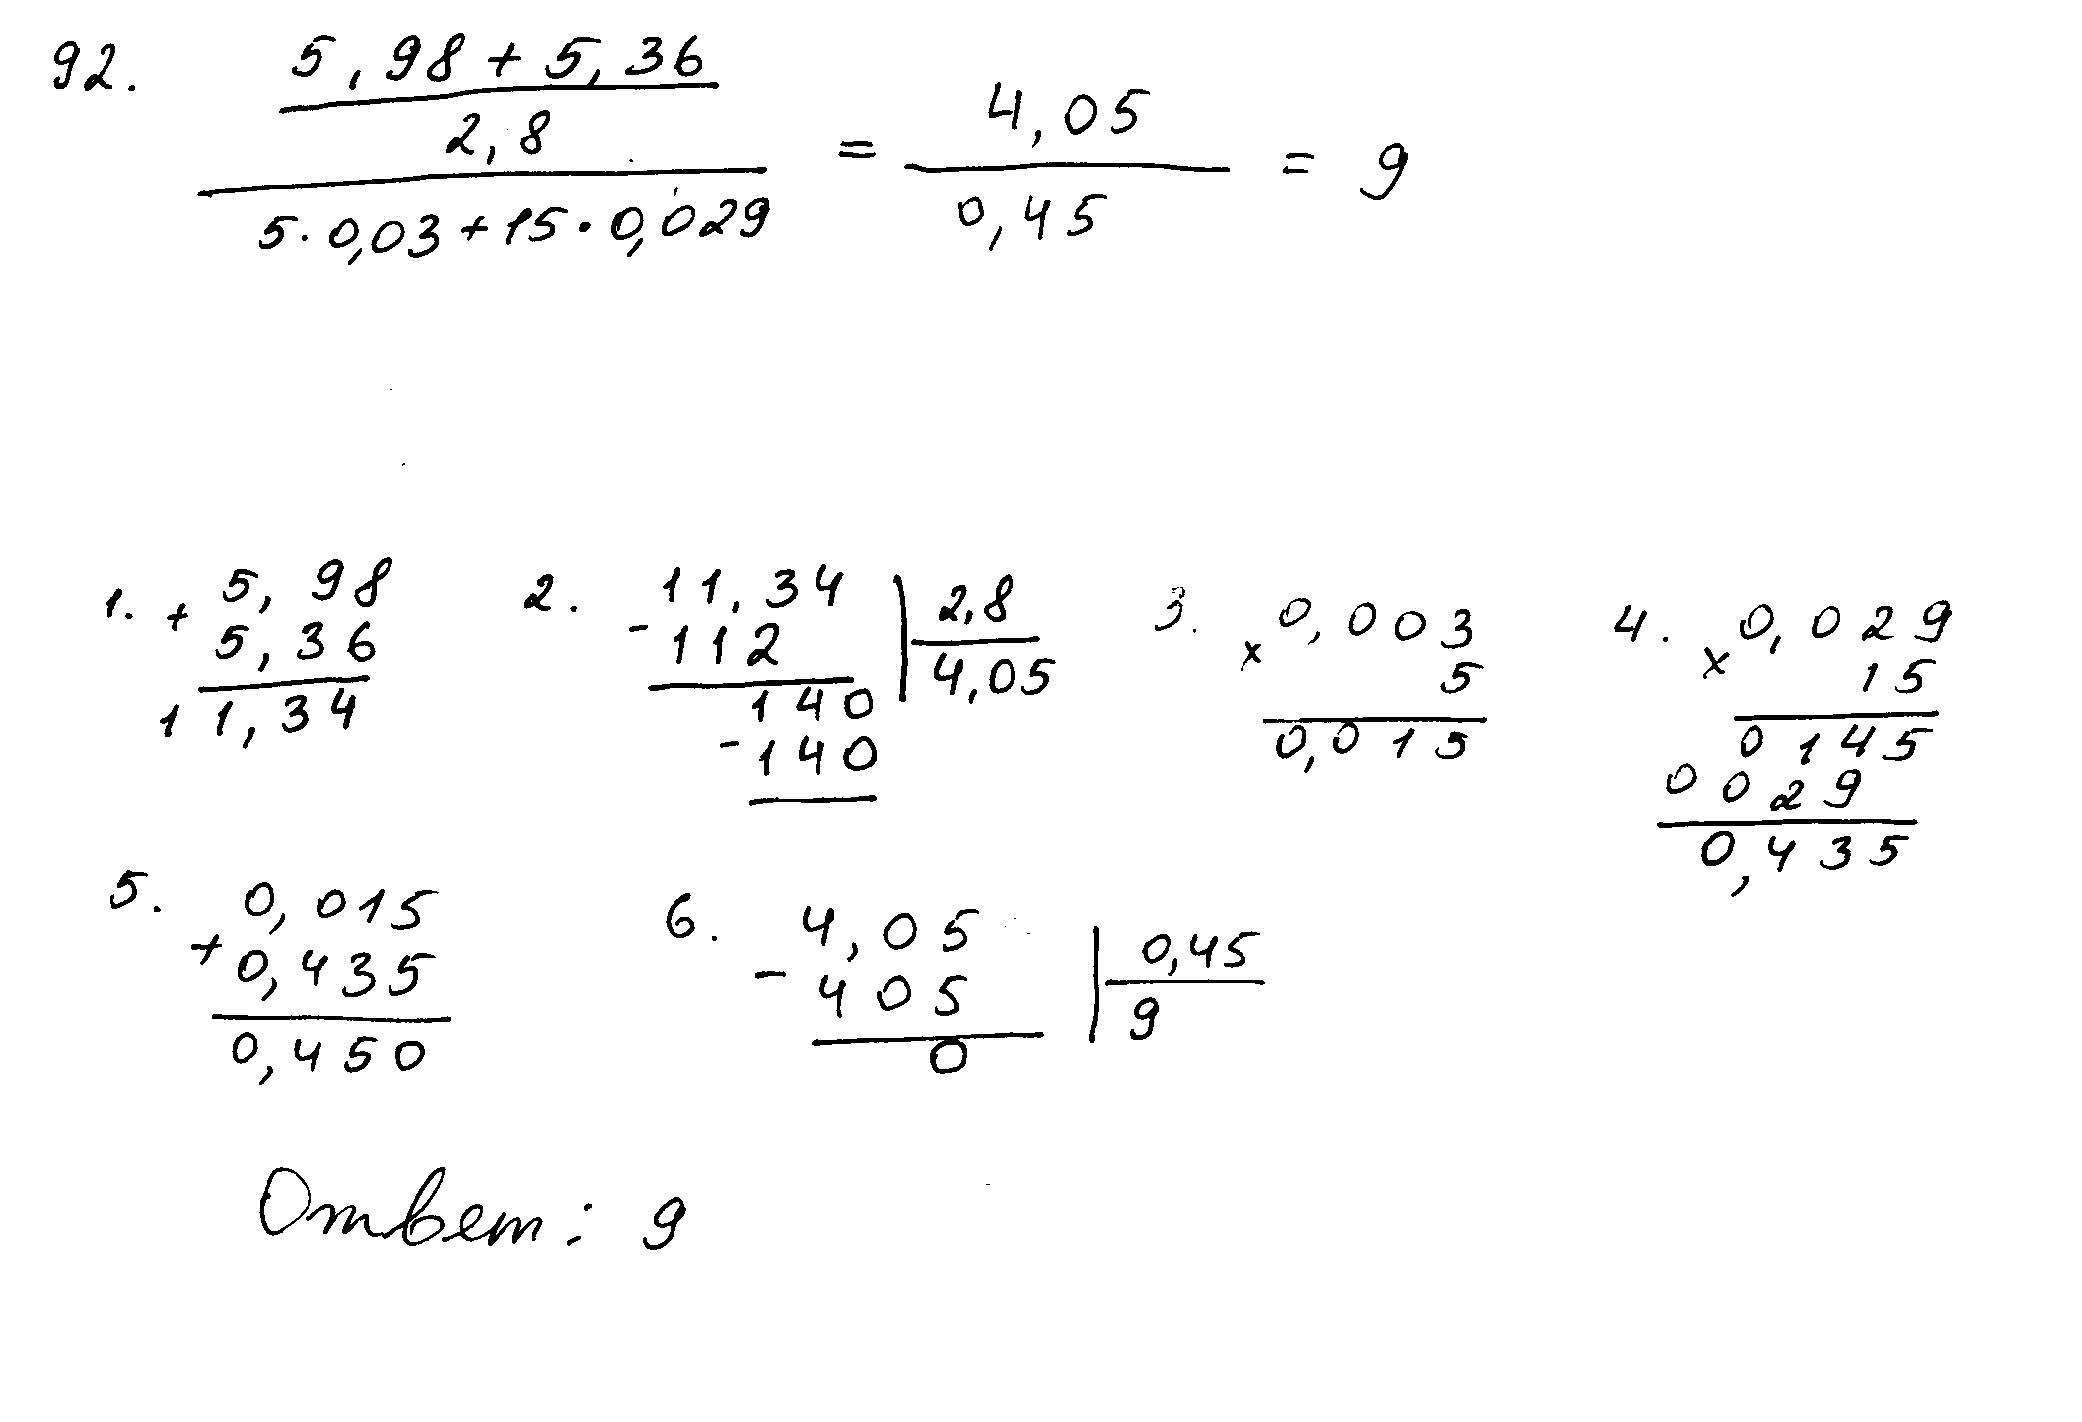 92.
5,98 + 5,36
2,8
5·0,03 + 15·0,029
=
4,05
0,45
= 9
1. + 5,98
5,36
11,34
2. - 11,34 | 2,8
112 | 4,05
140
- 140
3. x 0,003
5
0,015
4. x 0,029
15
0145
0029
0,435
5. + 0,015
0,435
0,450
6. - 4,05 | 0,45
405 | 9
0
Ответ: 9